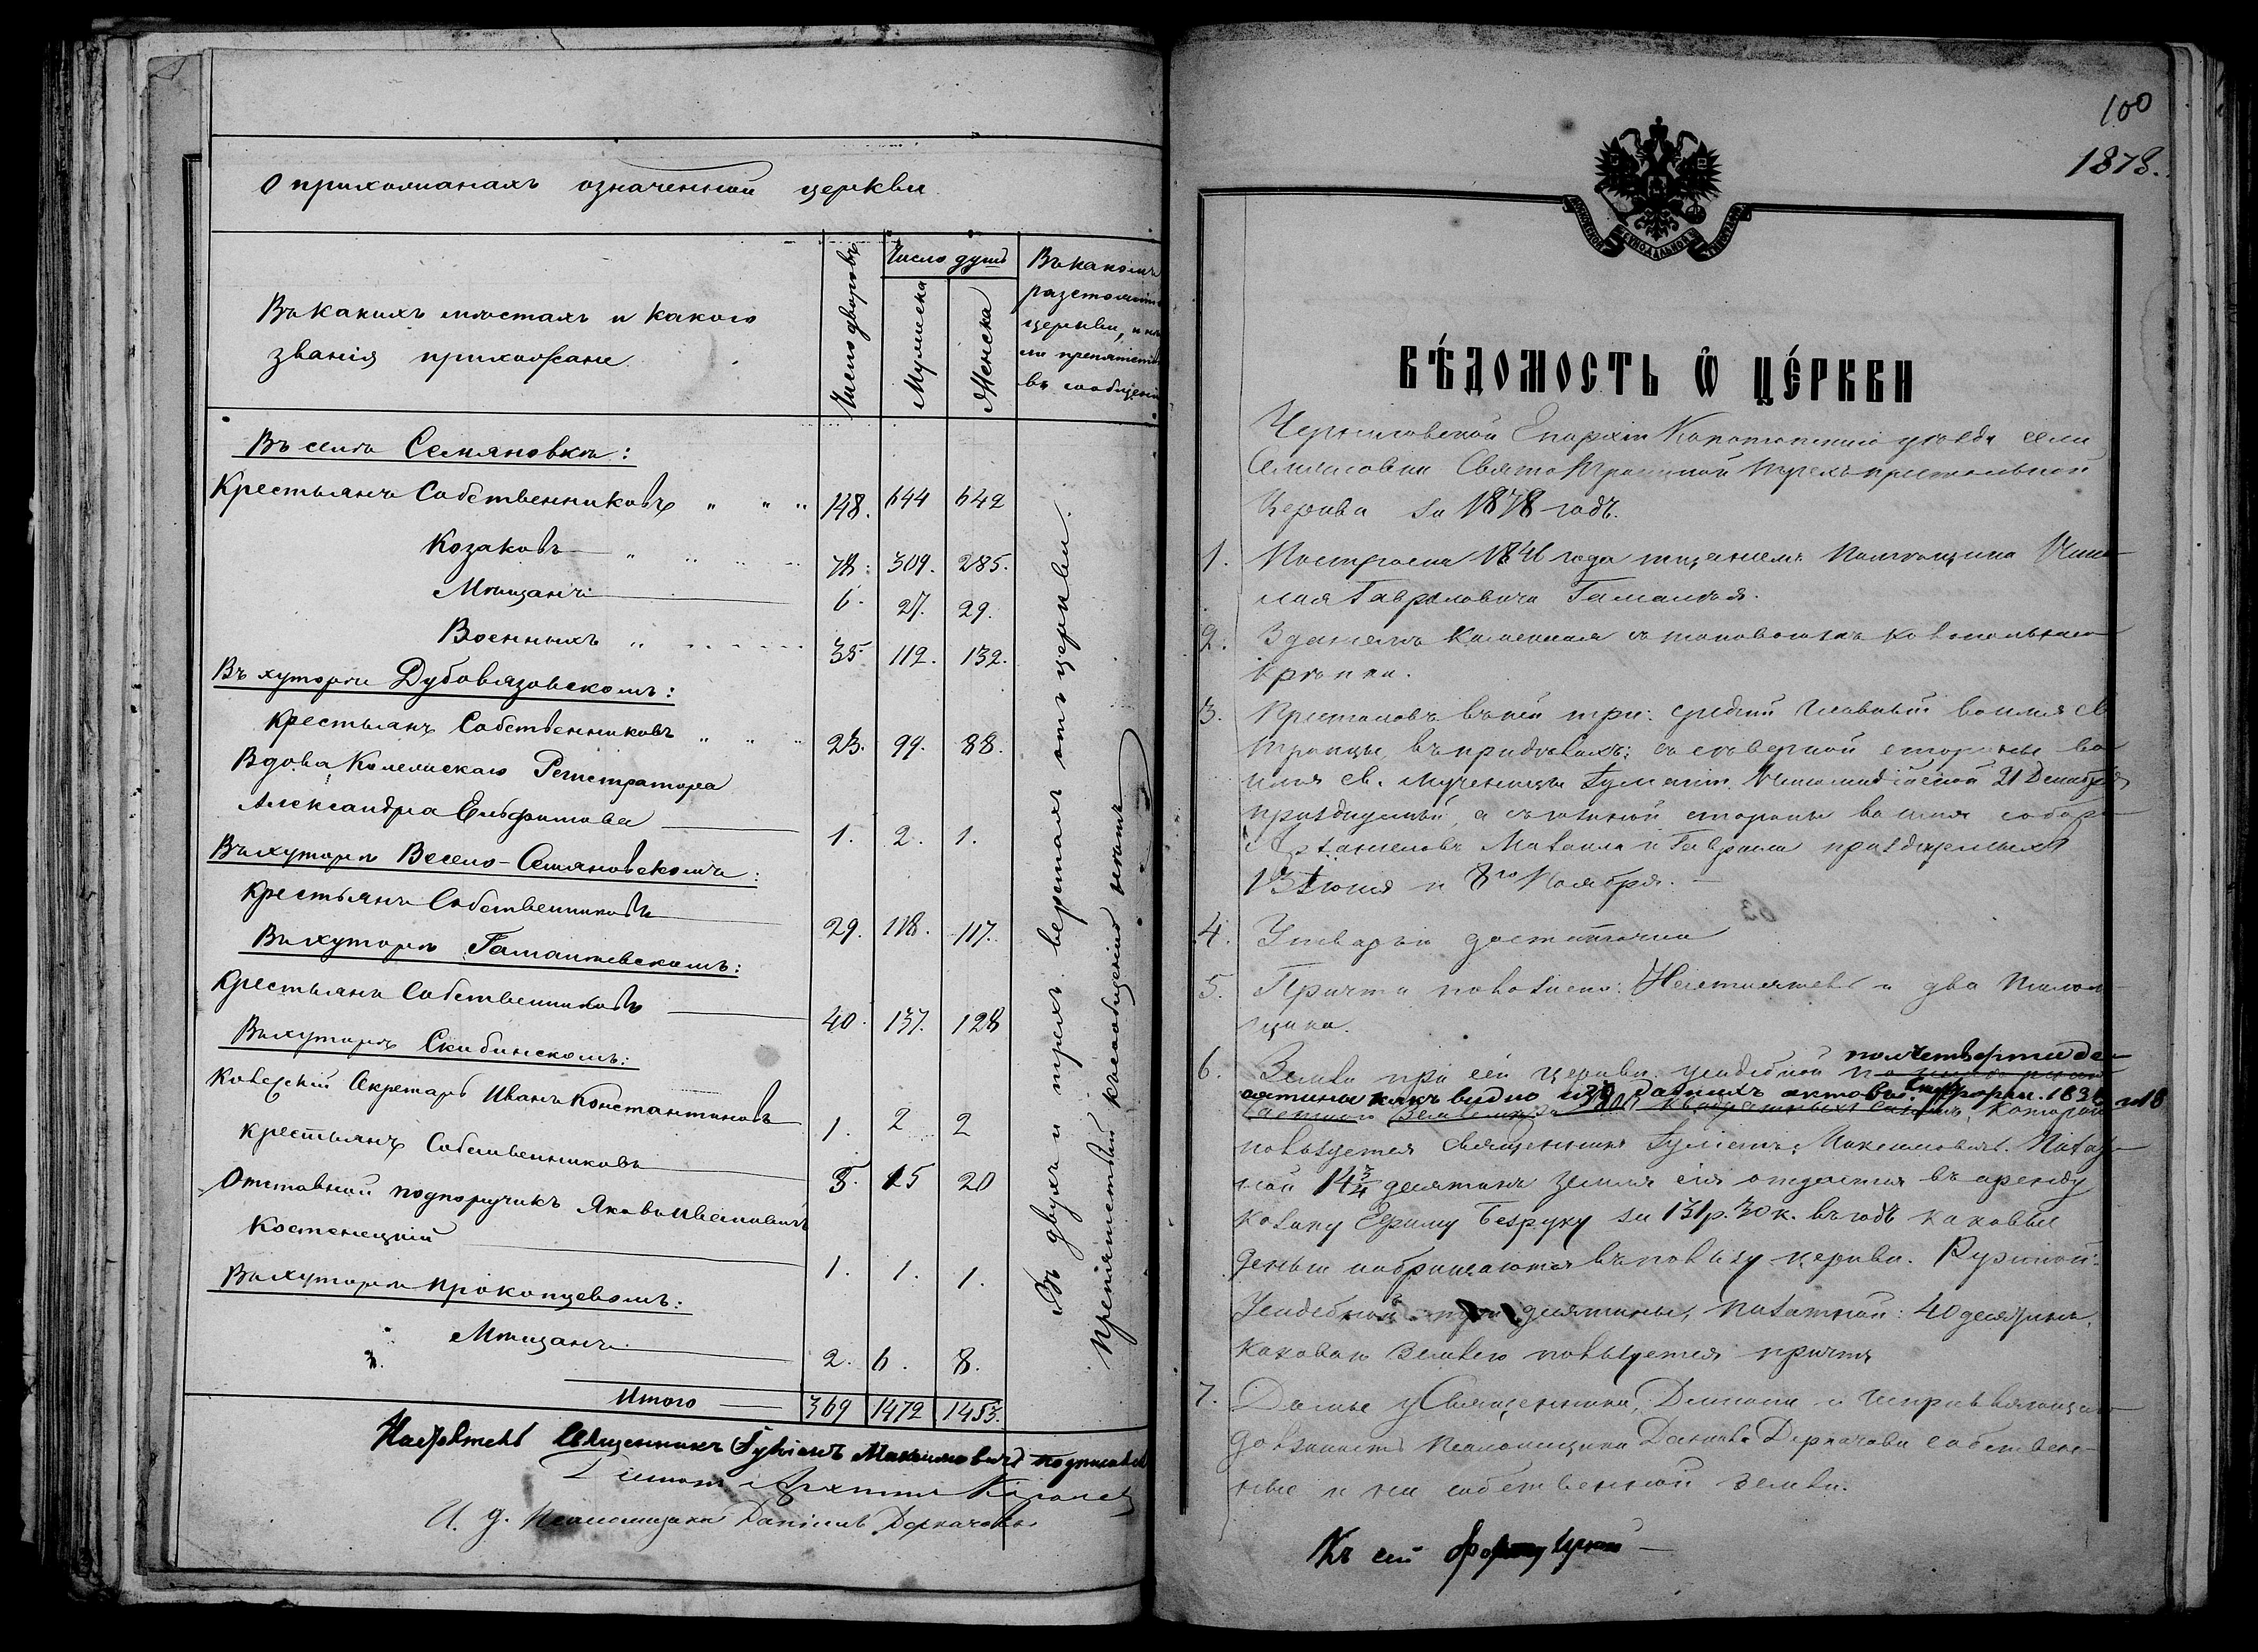 О прихожанахъ означенной церкви
Въ какихъ мѣстахъ и какого
званія прихожане.
Число дворовъ
Число душъ
Мужеска
Женска
Въ какомъ
разстоянiи
церкви, и
ли препятств
въ сообщенi
Въ селѣ Семяновкѣ:
Крестьянъ Собственниковъ " " " 148. 644 642
Козаковъ " " " 78. 309. 285.
Мѣщанъ 6. 27. 29.
Военныхъ " 35. 112. 132.
Въ хуторѣ Дубовязовскомъ:
Крестьянъ Собственниковъ " " " 23. 99. 88.
Вдова Колежскаго Регистратора
Александра 1. 2. 1.
Въ хуторѣ Весело-Семяновскомъ:
Крестьянъ Собственниковъ 29. 118. 117.
Въ хуторѣ Гамалѣевскомъ:
Крестьянъ Собственниковъ 40. 137. 128
Въ хуторѣ Скибинскомъ:
Секретарь Иванъ Константиновъ 1. 2 2
Крестьянъ Собственниковъ 5. 15 20
Отставной подпоручикъ Яковъ Ивановичъ
Костенецкій 1. 1. 1.
Въ хуторѣ Прокопцевомъ:
Мѣщанъ 2. 6. 8.
Итого 369 1472 1453.
Въ двухъ и трехъ верстахъ отъ церкви.
Препятствій къ сообщенію нѣтъ
Настоятель Священникъ Гулiанъ Максимовичъ подписался
Дiаконъ
И. д. Псаломщика Данiилъ Деркачовъ
100
1878.
МОСКОВСКОЙ СѴНОДАЛЬНОЙ ТИПОГРАФІИ
ВѢ́ДОМОСТЬ Ѡ҆ ЦЕ́РКВИ
Черниговской Епархiи Конотопскаго уѣзда села
Семяновки Свято Троицкой трехъ престольной
Церкви за 1878 годъ.
1. Построена 1846 года тщанiемъ Помѣщика
Гавриловича Гамалѣя.
2. Зданiемъ каменная съ таковоюжъ колокольнею
крѣпка.
3. Престоловъ въ ней три: средній главный во имя Св.
Троицы, въ придѣлахъ: съ сѣверной стороны во
имя св. мученицы Гуліанiи Никомидійской 21 Декабря
празднуемый, а съ южной стороны во имя собора
Архангеловъ Михаила и Гавріила празднуемыхъ
13 Іюля и 8го Ноября.
4. Утварью достаточна
5. Причта положено: Настоятель и два Псалом-
щика.
6. Земли при сей церкви усадебной полчетверти де-
сятины какъ видно изъ данныхъ актовъ 18
которою
пользуется Священникъ Гуліанъ Максимовичъ. Пахат-
ной 14¾ десятинъ земля сія отдается въ аренду
козаку Ефиму Безруку за 131 р. 30 к. въ годъ каковые
деньги обращаются въ пользу церкви. Ружной:
Усадебной десятины, пахатной: 40 десятинъ,
каковою землею пользуется причтъ
7. Домы у Священника, Діакона и исправляющаго
должность псаломщика Даніила Деркачова собствен-
ные и на собственной земли.
Къ сей